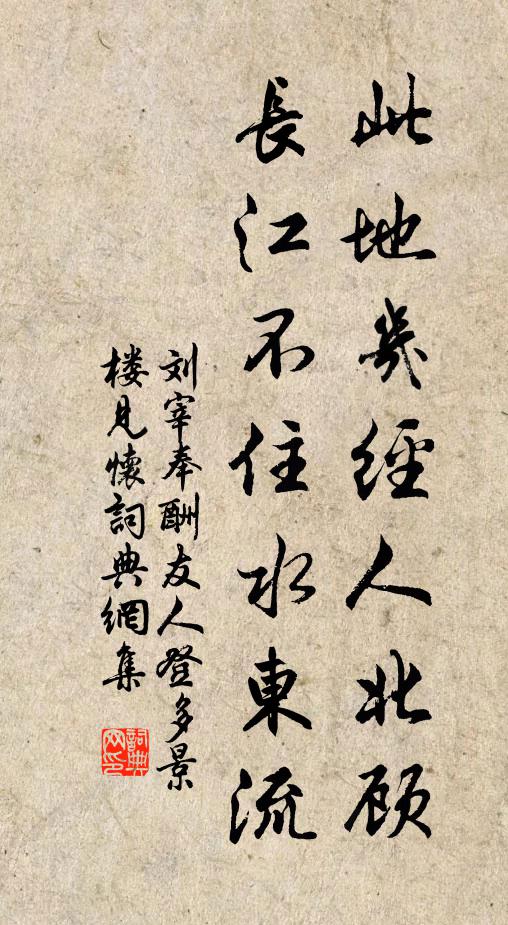 此地幾經人北顧
長江不住水東流
刘宰奉酬友人登多景
楼見懷詞典網集
詞典
网印